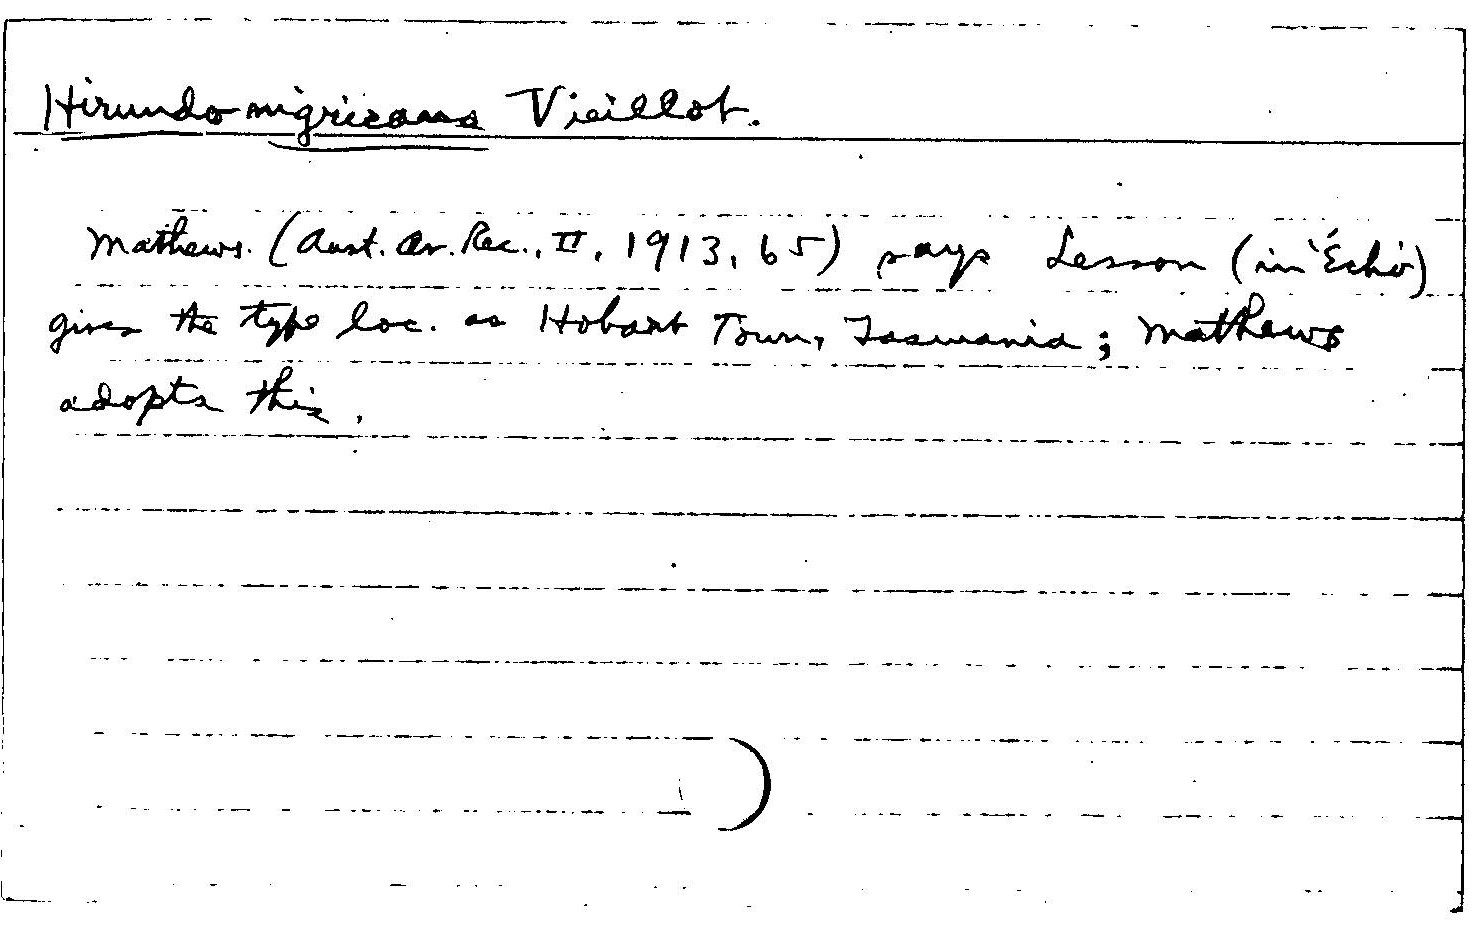 Hirundo nigricans Vieillot.
Mathews. (Aust. Av. Rec., II, 1913, 65) says Lesson (in 'Écho')
gives the type loc. as Hobart Town, Tasmania; Mathews
adopts this.